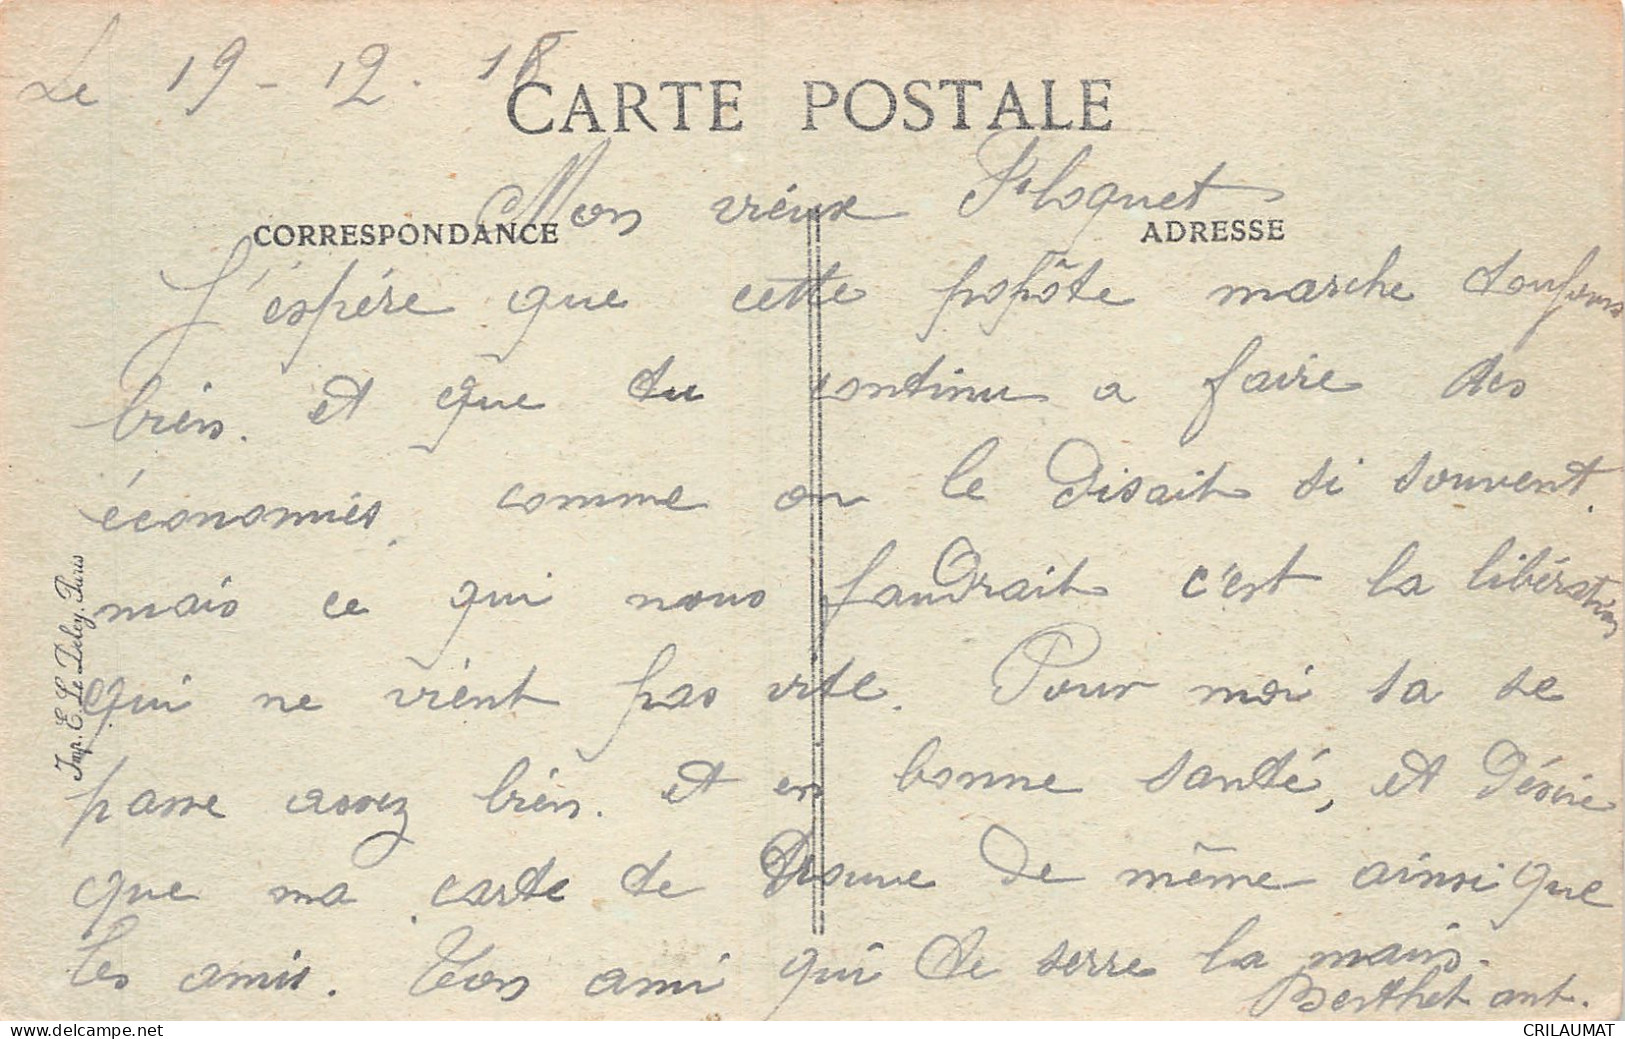 Le 19-12.18
CARTE POSTALE
Mon vieux Floquet
CORRESPONDANCE
ADRESSE
J'éspére que cette popôte marche toujours
bien. et que tu continu a faire des
économies. comme on le disait si souvent.
mais ce qui nous faudrait c'est la libération
qui ne vient pas vite. Pour moi sa se
passe assez bien. et en bonne santé, et désire
que ma carte te trouve de même ainsi que
tes amis. Ton ami qui te serre la main.
Berthet ant.
Imp. E. Le Deley, Paris
CRILAUMAT